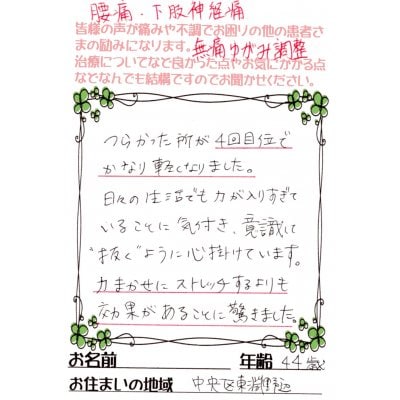 腰痛・下肢神経痛
皆様の声が痛みや不調でお困りの他の患者さ
まの励みになります。無痛ゆがみ調整
治療についてなど良かった点やお気にかかる点
などなんでも結構ですのでお聞かせください。
つらかった所が4回目位で
かなり軽くなりました。
日々の生活でも力が入りすぎて
いることに気付き、意識して
"抜く"ように心掛けています。
力まかせにストレッチするよりも
効果があることに驚きました。
お名前 年齢 44歳
お住まいの地域 中央区東